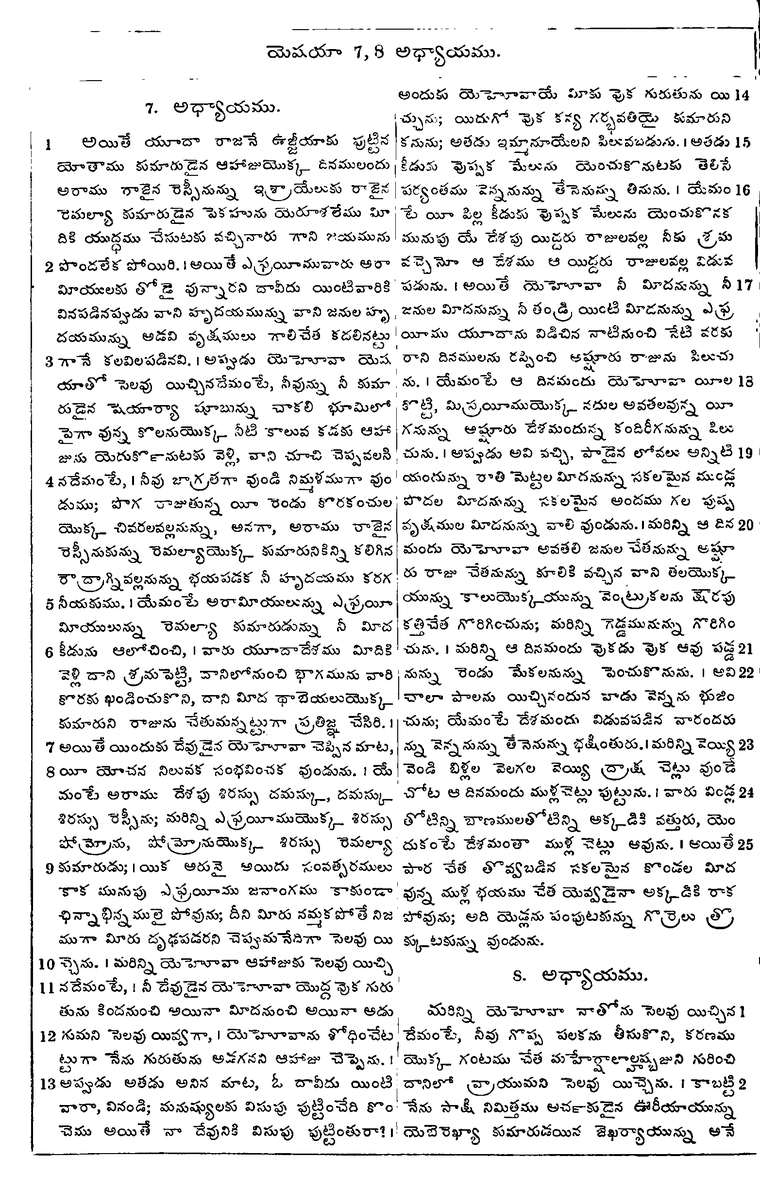 యెషయా 7, 8 అధ్యాయము.
7. అధ్యాయము.
1 అయితే యూదా రాజనే ఉజ్జీయాకు పుట్టిన
యోతాము కుమారుడైన ఆహాజుయొక్క దినములందు
అరాము రాజైన రెస్సీనున్ను ఇశ్రాయేలుకు రాజైన
రెమల్యా కుమారుడైన పెకహును యెరూశలేము మీ
దికి యుద్ధము చేసుటకు వచ్చినారు గాని జయమును
2 పొందలేక పోయిరి. । అయితే ఎఫ్రయీమువారు అరా
మీయులకు తోడై వున్నారని దావీదు యింటివారికి
వినపడినప్పుడు వాని హృదయమున్ను వాని జనుల హృ
దయమున్ను అడవి వృక్షములు గాలిచేత కదలినట్టు
3 గానే కలవిలపడినవి. । అప్పుడు యెహెూవా యెష
యాతో సెలవు యిచ్చినదేమంటే, నీవున్ను నీ కుమా
రుడైన షెయార్యా షూబున్ను చాకలి భూమిలో
పైగా వున్న కొలనుయొక్క నీటి కాలువ కడకు ఆహా
జును యెదుర్కొనుటకు వెళ్లి, వాని చూచి చెప్పవలసి
4 నదేమంటే, । నీవు జాగ్రతగా వుండి నిమ్మళముగా వుం
డుము; పొగ రాజుతున్న యీ రెండు కొరకంచుల
యొక్క చివరలవల్లనున్ను, అనగా, అరాము రాజైన
రెస్సీనుకున్ను రెమల్యాయొక్క కుమారునికిన్ని కలిగిన
రౌద్రాగ్నివల్లనున్ను భయపడక నీ హృదయము కరగ
5 నీయకుము. । యేమంటే అరామీయులున్ను ఎఫ్రయీ
మీయులున్ను రెమల్యా కుమారుడున్ను నీ మీద
6 కీడును ఆలోచించి, । వారు యూదాదేశము మీదికి
వెళ్లి దాని శ్రమపెట్టి, దానిలోనుంచి భాగమును వారి
కొరకు ఖండించుకొని, దాని మీద థాబెయలుయొక్క
కుమారుని రాజును చేతుమన్నట్టుగా ప్రతిజ్ఞ చేసిరి. ।
7 అయితే యిందుకు దేవుడైన యెహెూవా చెప్పిన మాట,
8 యీ యోచన నిలువక సంభవించక వుండును. । యే
మంటే అరాము దేశపు శిరస్సు దమస్కు, దమస్కు
శిరస్సు రెస్సీను; మరిన్ని ఎఫ్రయీముయొక్క శిరస్సు
షోమ్రోను, షోమ్రోనుయొక్క శిరస్సు రెమల్యా
9 కుమారుడు; । యిక ఆరునై అయిదు సంవత్సరములు
కాక మునుపు ఎఫ్రయీము జనాంగము కాకుండా
ఛిన్నాభిన్నములై పోవును; దీని మీరు నమ్మకపోతే నిజ
ముగా మీరు దృఢపడరని చెప్పుమనేదిగా సెలవు యి
10 చ్చెను. । మరిన్ని యెహెూవా ఆహాజుకు సెలవు యిచ్చి
11 నదేమంటే, । నీ దేవుడైన యెహెూవా యొద్ద వొక గురు
తును కిందనుంచి అయినా మీదనుంచి అయినా అడు
12 గుమని సెలవు యివ్వగా, । యెహెూవాను శోధించేట
ట్టుగా నేను గురుతును అడగనని ఆహాజు చెప్పెను. ।
13 అప్పుడు అతడు అనిన మాట, ఓ దావీదు యింటి
వారా, వినండి; మనుష్యులకు విసుపు పుట్టించేది కొం
చెము అయితే నా దేవునికి విసుపు పుట్టింతురా? ।
అందుకు యెహెూవాయే మీకు వొక గురుతును యి 14
చ్చును; యిదుగో వొక కన్య గర్భవతియై కుమారుని
కనును; అతడు ఇమ్మానూయేలని పిలువబడును. । అతడు 15
కీడుకు వొప్పక మేలును యెంచుకొనుటకు తెలిసే
పర్యంతము వెన్ననున్ను తేనెనున్ను తినును. । యేమం 16
టే యీ పిల్ల కీడుకు వొప్పక మేలును యెంచుకొనక
మునుపు యే దేశపు యిద్దరు రాజులవల్ల నీకు శ్రమ
వచ్చెనో ఆ దేశము ఆ యిద్దరు రాజులవల్ల విడువ
పడును. । అయితే యెహెూవా నీ మీదనున్ను నీ 17
జనుల మీదనున్ను నీ తండ్రి యింటి మీదనున్ను ఎఫ్ర
యీము యూదాను విడిచిన నాటినుంచి నేటి వరకు
రాని దినములను రప్పించి అష్షూరు రాజును పిలుచు
ను. । యేమంటే ఆ దినమందు యెహెూవా యీల 18
కొట్టి, మిస్రయీముయొక్క నదుల అవతలవున్న యీ
గనున్ను అష్షూరు దేశమందున్న కందిరీగనున్ను పిలు
చును. । అప్పుడు అవి వచ్చి, పాడైన లోవలు అన్నిటి 19
యందున్ను రాతి మెట్టల మీదనున్ను సకలమైన ముండ్ల
పొదల మీదనున్ను సకలమైన అందము గల పుష్ప
వృక్షముల మీదనున్ను వాలి వుండును. । మరిన్ని ఆ దిన 20
మందు యెహెూవా అవతలి జనుల చేతనున్ను అష్షూ
రు రాజు చేతనున్ను కూలికి వచ్చిన వాని తలయొక్క
యున్ను కాలుయొక్కయున్ను వెంట్రుకలను క్షౌరపు
కత్తిచేత గొరిగించును; మరిన్ని గెడ్డమునున్ను గొరిగిం
చును. । మరిన్ని ఆ దినమందు వొకడు వొక ఆవు పడ్డ 21
నున్ను రెండు మేకలనున్ను పెంచుకొనును. । అవి 22
చాలా పాలను యిచ్చినందున వాడు వెన్నను భుజిం
చును; యేమంటే దేశమందు విడువపడిన వారందరు
న్ను వెన్ననున్ను తేనెనున్ను భక్షింతురు. । మరిన్ని వెయ్యి 23
వెండి బిళ్లల వెలగల వెయ్యి ద్రాక్ష చెట్లు వుండే
చోట ఆ దినమందు ముళ్లచెట్లు పుట్టును. । వారు విండ్ల 24
తోటిన్ని బాణములతోటిన్ని అక్కడికి వత్తురు, యెం
దుకంటే దేశమంతా ముళ్ల చెట్లు అవును. । అయితే 25
పార చేత తొవ్వబడిన సకలమైన కొండల మీద
వున్న ముళ్ల భయము చేత యెవ్వడైనా అక్కడికి రాక
పోవును; అది యెడ్లను పంపుటకున్ను గొర్రెలు త్రొ
క్కుటకున్ను వుండును.
8. అధ్యాయము.
మరిన్ని యెహెూవా నాతోను సెలవు యిచ్చిన 1
దేమంటే, నీవు గొప్ప పలకను తీసుకొని, కరణము
యొక్క గంటము చేత మహేర్షాలాల్హష్బజుని గురించి
దానిలో వ్రాయుమని సెలవు యిచ్చెను. । కాబట్టి 2
నేను సాక్షి నిమిత్తము అర్చకుడైన ఊరీయాయున్ను
యెబెరెఖ్యా కుమారుడయిన జెఖర్యాయున్ను అనే